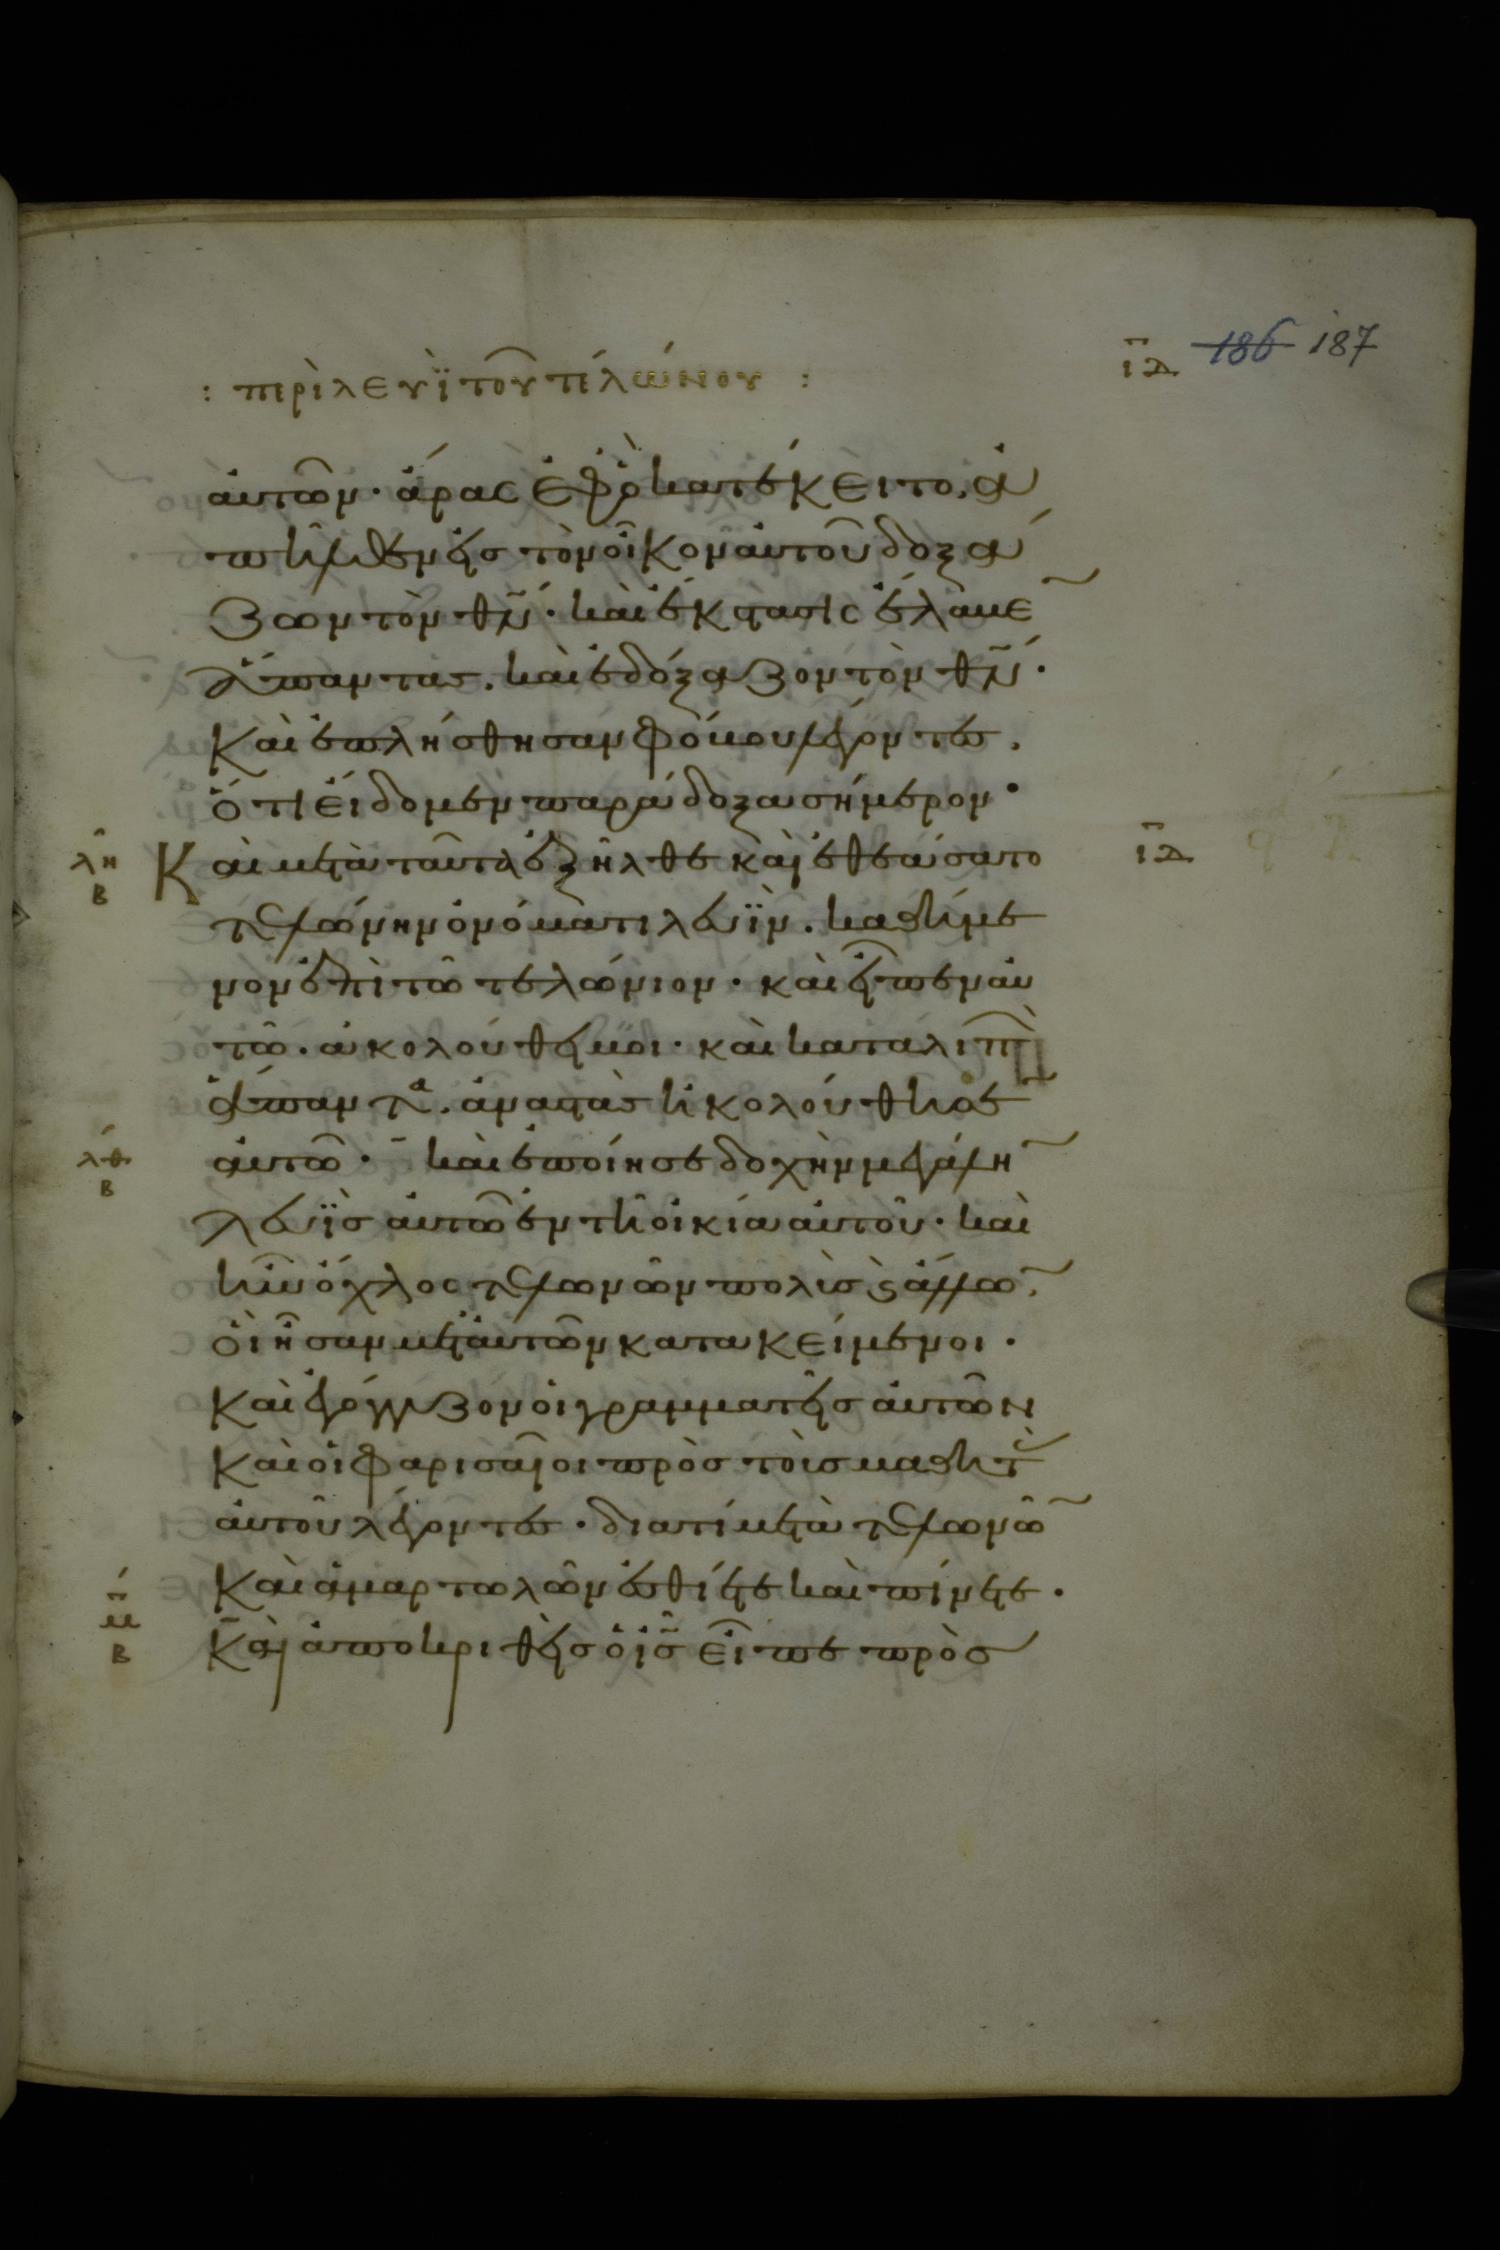 ιδ 186 187
: περὶ λευῒ τοῦ τελώνου :
αὐτῶν· ἄρας ἐφ ὃ κατέκειτο, ἀ
πῆλθεν εἰς τὸν οἶκον αὐτοῦ δοξά
ζων τὸν θν̄· καὶ ἔκστασις ἔλαβε
ἅπαντας. καὶ ἐδόξαζον τὸν θν̄·
Καὶ ἐπλήσθησαν φόβου λέγοντες,
ὅτι εἴδομεν παράδοξα σήμερον·
λη
β
Καὶ μετὰ ταῦτα ἐξῆλθε καὶ ἐθεάσατο
ιδ
τελώνην ὀνόματι λευῒν. καθήμε
νον ἐπὶ τὸ τελώνιον· καὶ εἶπεν αὐ
τῶ· ἀκολούθει μοι· καὶ καταλιπὼ
ἅπαντα. ἀναστὰς ἠκολούθησε
λθ
β
αὐτῶ· καὶ ἐποίησε δοχὴν μεγάλη
λευῒς αὐτῶ ἐν τῆ οἰκία αὐτοῦ· καὶ
ἦν ὄχλος τελωνῶν πολὺς ϗ ἄλλω,
οἳ ἦσαν μετ αὐτῶν κατακείμενοι·
Καὶ ἐγόγγυζον οἱ γραμματεῖς αὐτῶν
Καὶ οἱ φαρισαῖοι πρὸς τοὺς μαθητ
αὐτοῦ λέγοντες· διατί μετὰ τελωνῶ
Καὶ ἁμαρτωλῶν ἐσθίετε καὶ πίνετε·
μ
β
Καὶ ἀποκριθεὶς ὁ ις̄ εἶπε πρὸς